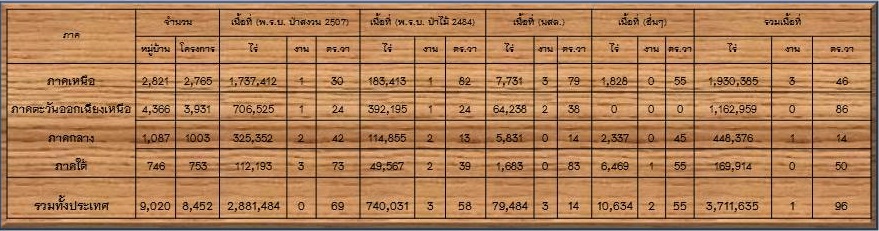 ภาค จำนวน เนื้อที่ (พ.ร.บ. ป่าสงวน 2507) เนื้อที่ (พ.ร.บ. ป่าไม้ 2484) เนื้อที่ (นสล.) เนื้อที่ (อื่นๆ) รวมเนื้อที่
หมู่บ้าน โครงการ ไร่ งาน ตร.วา ไร่ งาน ตร.วา ไร่ งาน ตร.วา ไร่ งาน ตร.วา ไร่ งาน ตร.วา
ภาคเหนือ 2,821 2,765 1,737,412 1 30 183,413 1 82 7,731 3 79 1,828 0 55 1,930,385 3 46
ภาคตะวันออกเฉียงเหนือ 4,366 3,931 706,525 1 24 392,195 1 24 64,238 2 38 0 0 0 1,162,959 0 86
ภาคกลาง 1,087 1003 325,352 2 42 114,855 2 13 5,831 0 14 2,337 0 45 448,376 1 14
ภาคใต้ 746 753 112,193 3 73 49,567 2 39 1,683 0 83 6,469 1 55 169,914 0 50
รวมทั้งประเทศ 9,020 8,452 2,881,484 0 69 740,031 3 58 79,484 3 14 10,634 2 55 3,711,635 1 96